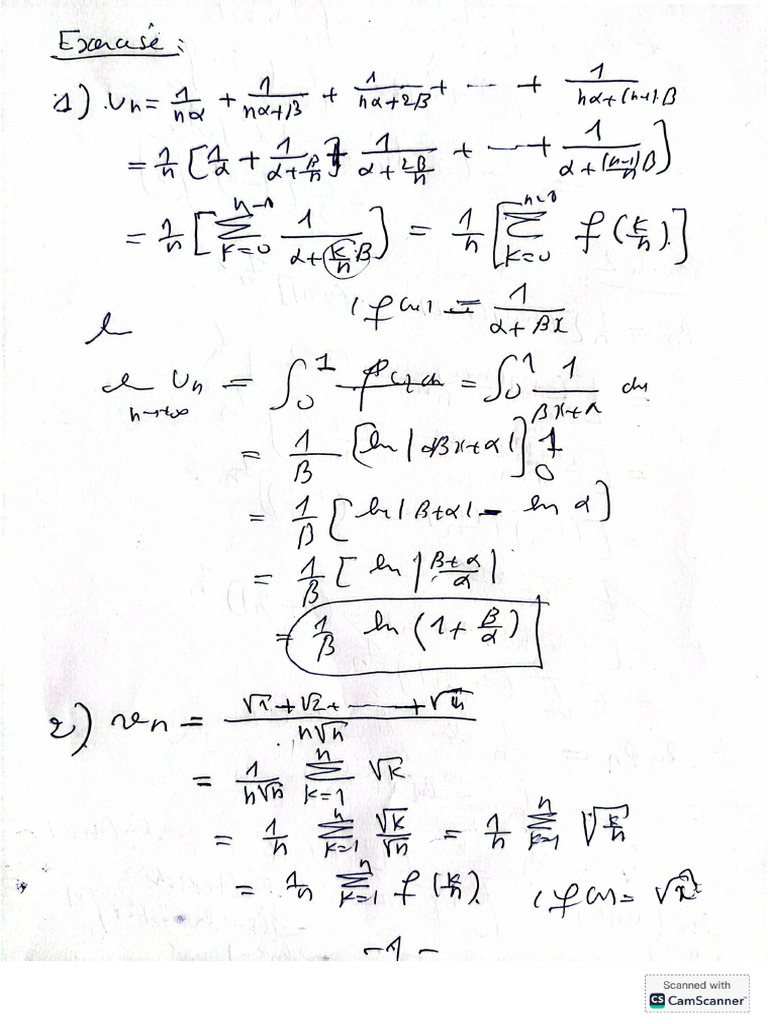 Exercise :
1) Un = 1/nα + 1/(nα+β) + 1/(nα+2β) + --- + 1/(nα+(n-1)β)
= 1/n [1/α + 1/(α+β/n) + 1/(α+2β/n) + --- + 1/(α+(n-1)/n β)]
= 1/n [∑_{k=0}^{n-1} 1/(α+(k/n)β)] = 1/n [∑_{k=0}^{n-1} f(k/n)]
(f(x) = 1/(α+βx)
lim_{n→+∞} Un = ∫_0^1 f(x)dx = ∫_0^1 1/(βx+α) dx
= 1/β [ln|βx+α|]_0^1
= 1/β [ln|β+α| - ln α]
= 1/β [ln|(β+α)/α|
= 1/β ln(1+β/α)
2) vn = (√1+√2+---+√n)/(n√n)
= 1/(n√n) ∑_{k=1}^{n} √k
= 1/n ∑_{k=1}^{n} √k/√n = 1/n ∑_{k=1}^{n} √(k/n)
= 1/n ∑_{k=1}^{n} f(k/n) (f(x) = √x
-1-
Scanned with
CS CamScanner